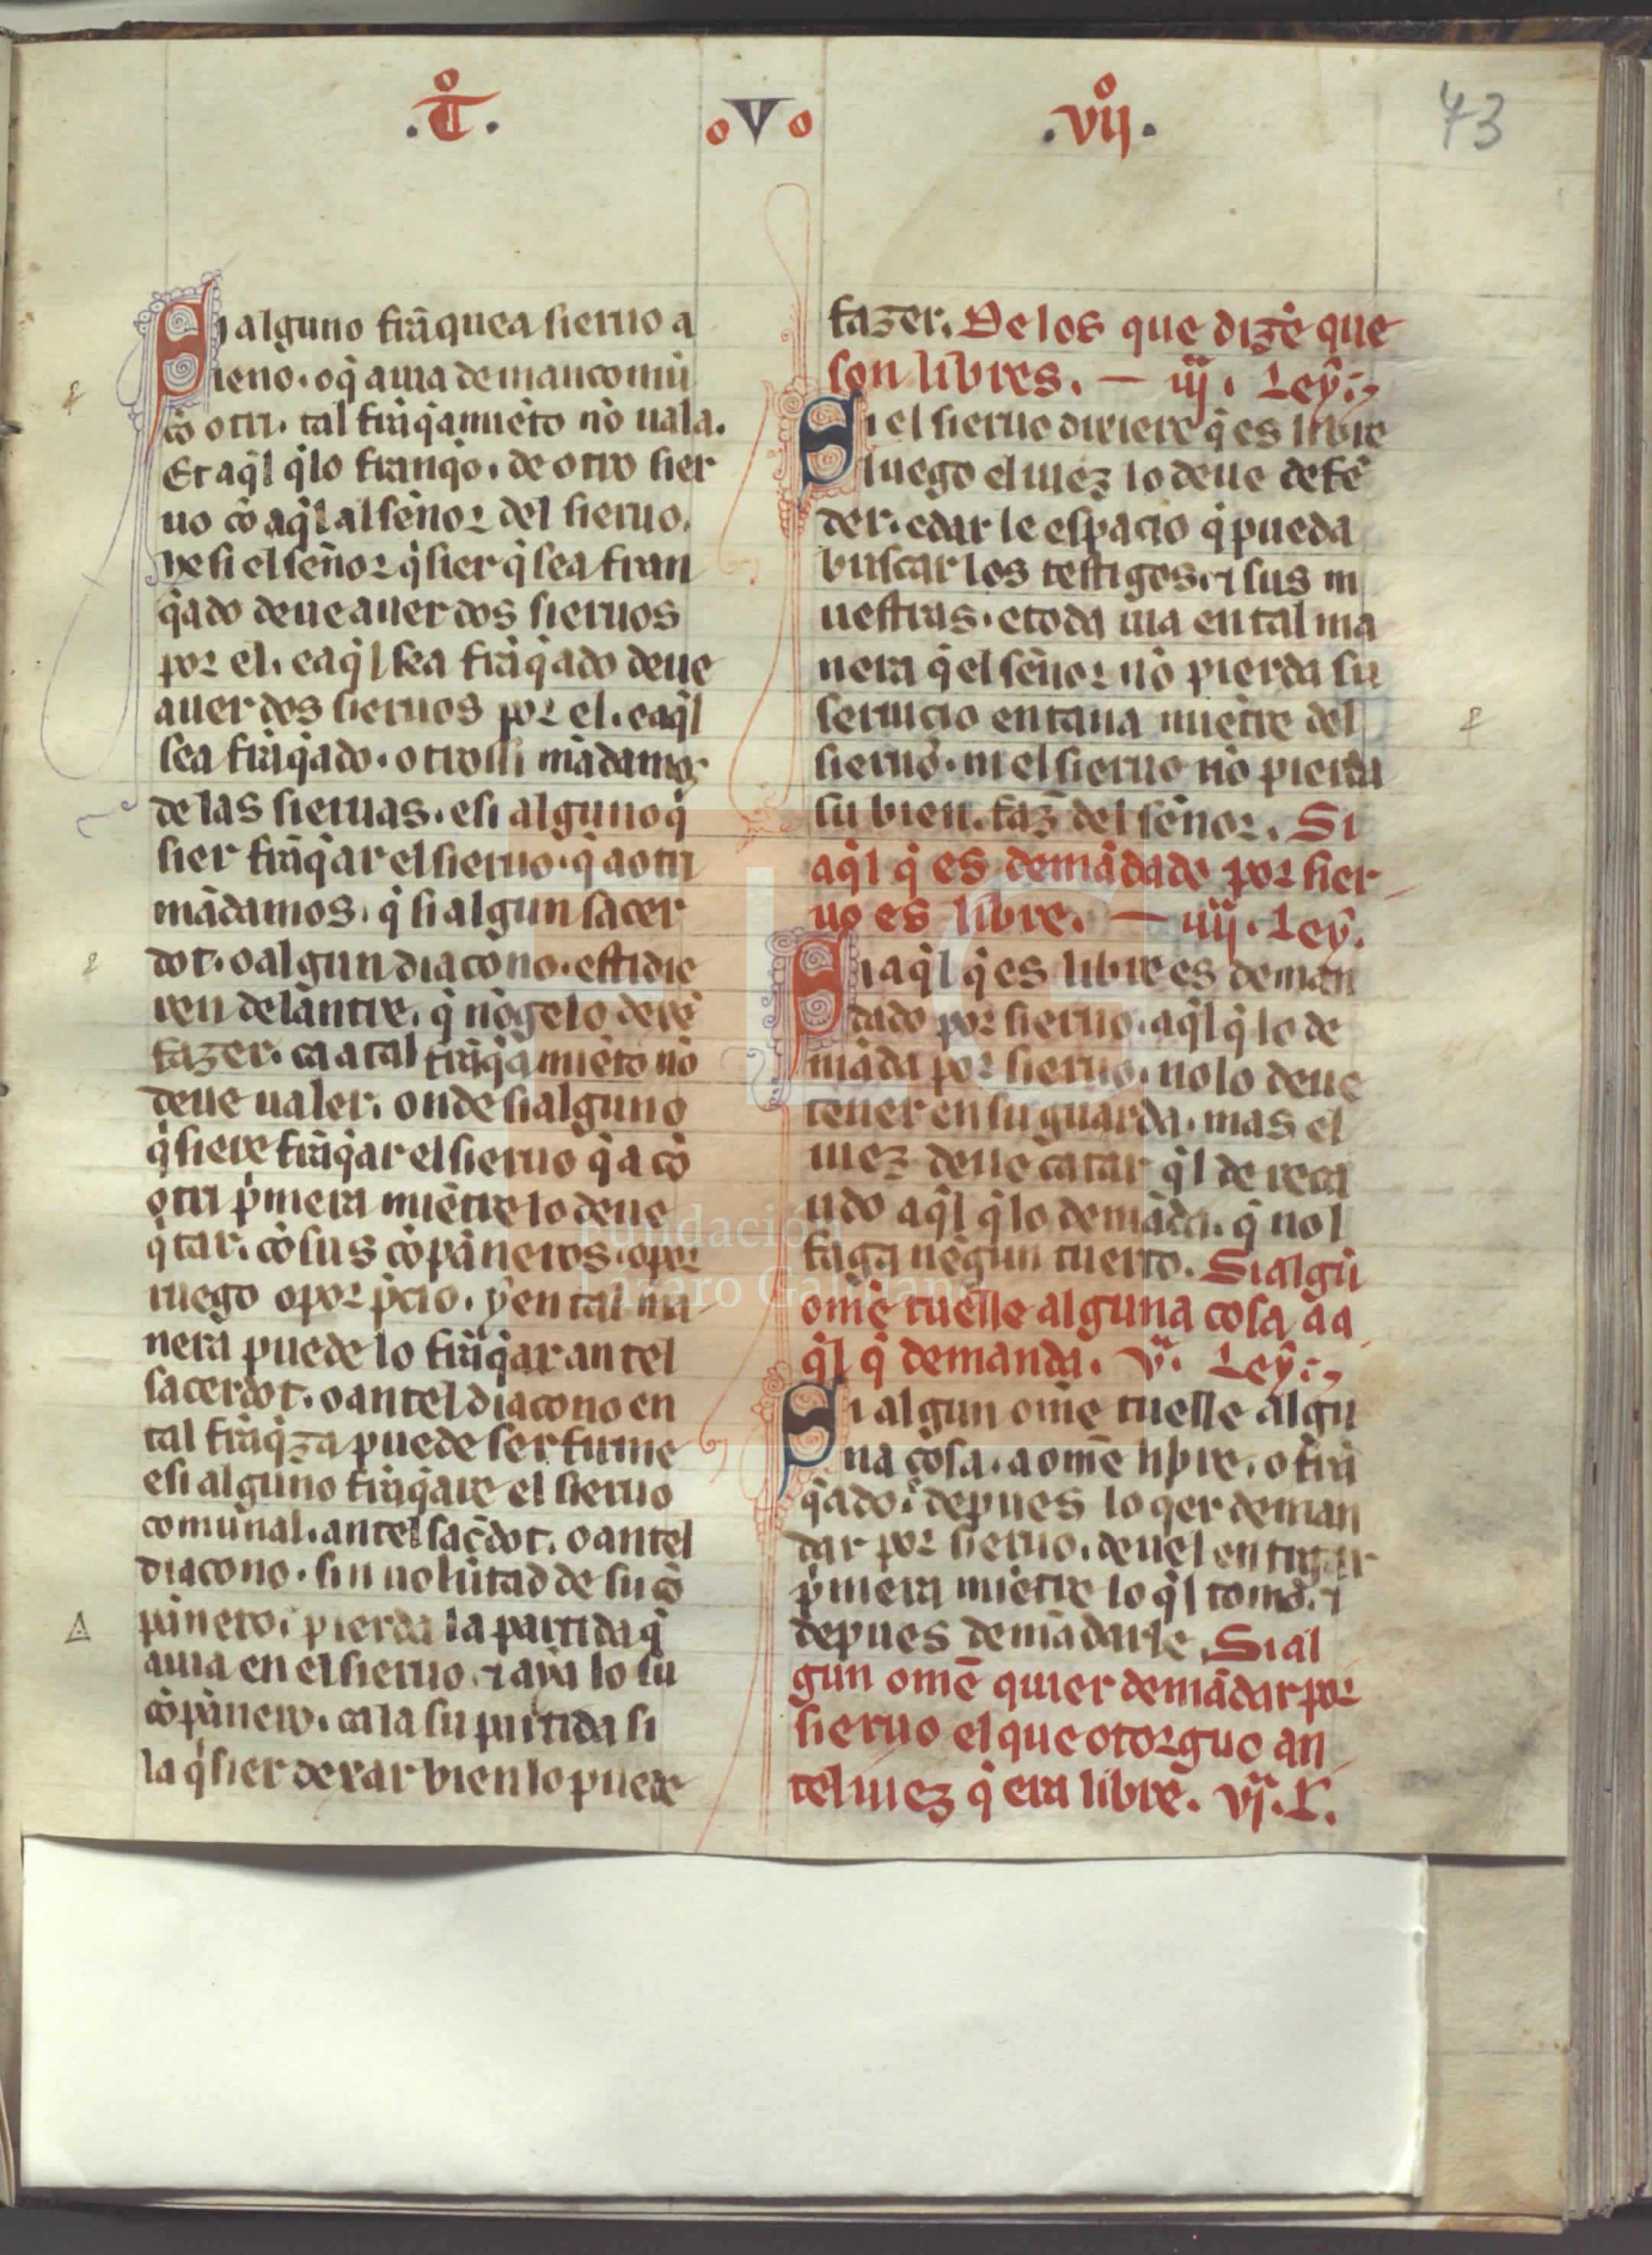 .T̊. o V o .vıȷ̊.
43
Si alguno frãquea sieruo a
ieno. o q̃ auia de mancomũ
cõ otri. tal frãq̃amiẽto nõ uala.
Et aq̃l q̃lo franq̃o. de otro sier
uo cõ aq̃l al señor del sieruo.
ye si el señor q̃sier q̃ sea fran
q̃ado deue auer dos sieruos
por el. e aq̃l sea frãq̃ado deue
auer dos sieruos por el. e aq̃l
sea frãq̃ado. otrossi mãdamos
de las sieruas. e si alguno q̃
sier frãq̃ar el sieruo. q̃ a otri
mãdamos. q̃ si algun sacer
dot. o algun diacono. estidie
ren delãntre. q̃ nõ gelo dexẽ
fazer. ca atal frãq̃amiẽto nõ
deue ualer. onde si alguno
q̃siere frãq̃ar el sieruo q̃ a cõ
otri p̃mera miẽtre lo deue
q̃tar. cõ sus cõpãneros. o por
ruego o por p̃cio. y en tal ma
nera puede lo frãq̃ar antel
sacerdot. o antel diacono en
tal frãq̃za puede ser firme
e si alguno frãq̃are el sieruo
comunal. antel sac̃dot. o antel
diacono. sin uolũtad de su cõ
pãnero. pierda la partida q̃
auia en el sieruo. ⁊ aya lo su
cõpãnero. ca la su partida si
la q̃sier dexar bien lo puede
fazer. De los que dizẽ que
son libres. — iij. Ley.
Si el sieruo dixiere q̃ es libre
luego el iuez lo deue defẽ
der. e dar le espacio q̃ pueda
buscar los testigos. ⁊ sus m
uestras. e toda uia en tal ma
nera q̃ el señor nõ pierda su
seruicio en tanta miẽtre del
sieruo. ni el sieruo nõ pierda
su bien. faz del señor. Si
aq̃l q̃ es demãdado por sier
uo es libre. — iiij. Ley.
Si aq̃l q̃ es libre es deman
dado por sieruo. aq̃l q̃ lo de
mãda por sieruo. no lo deue
tener en su guarda. mas el
iuez deue catar q̃l de reca
udo aq̃l q̃ lo demãda. q̃ nol
faga nẽgun tuerto. Si algũ
omẽ tuelle alguna cosa a a
q̃l q̃ demanda. v. Ley.
Si algun omẽ tuelle algu
na cosa. a omẽ libre. o frã
q̃ado. ⁊ depues lo q̃er deman
dar por sieruo. deuel entregar
p̃mera miẽtre lo q̃l tomo. ⁊
depues demãdarle. Si al
gun omẽ quier demãdar por
sieruo el que otorguo an
tel iuez q̃ era libre. vj. L.
Fundación
Lázaro Galdiano